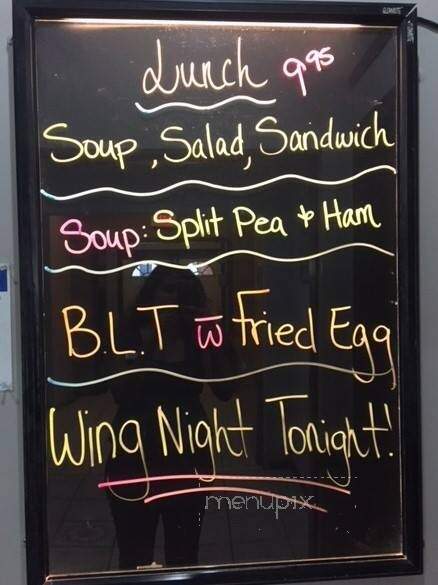 Lunch 9.95
Soup, Salad, Sandwich
Soup: Split Pea & Ham
B.L.T w̅ Fried Egg
Wing Night Tonight!
menupix